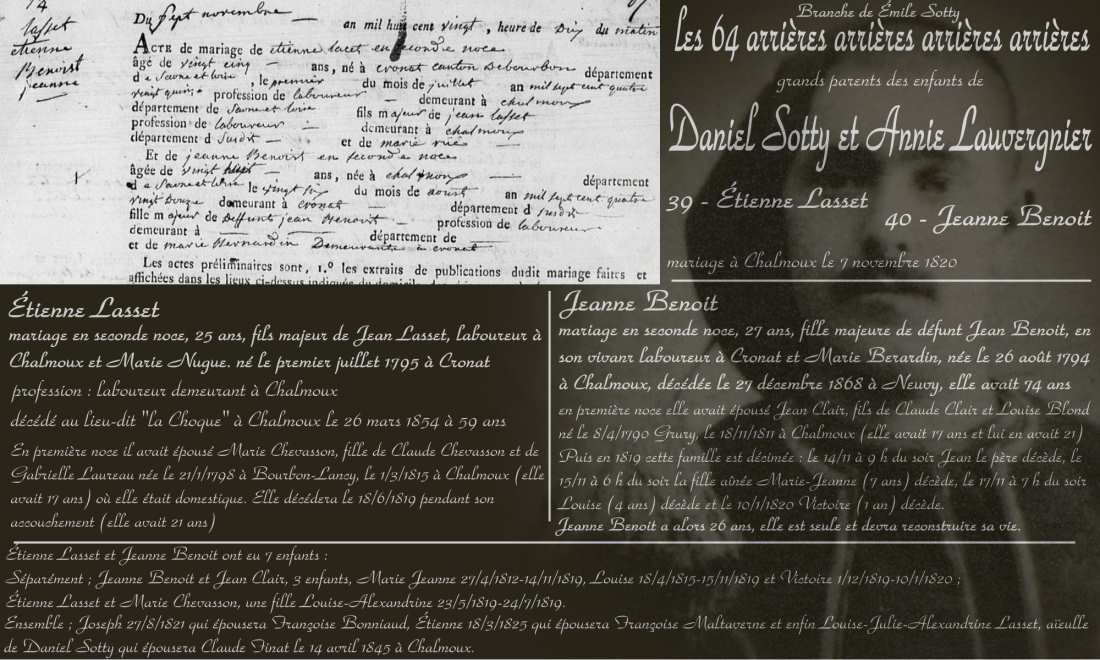 14
lasset
etienne
Benoist
jeanne
Du sept novembre
an mil huit cent vingt, heure de Dix du matin
ACTE de mariage de etienne lacet en seconde noce
âgé de vingt cinq ans, né à cronat canton Debourbon département
de Saone et loire, le premier du mois de juillet an mil sept cent quatre
vingt quinze profession de laboureur demeurant à chalmoux
département de Saone et loire fils majeur de jean lasset
profession de laboureur demeurant à chalmoux
département d Susdit et de marie
Et de jeanne Benoist en seconde noce
âgée de vingt ans, née à chalmoux département
de Saone et loire le vingt six du mois de aoust an mil sept cent quatre
vingt Douze demeurant à cronat département d susdit
fille majeur de Deffunt jean Benoist profession de laboureur
demeurant à département de
et de marie Bernardin Demeurante a cronat
Les actes préliminaires sont, 1.º les extraits de publications dudit mariage faites et
affichées dans les lieux ci-dessus
Branche de Émile Sotty
les 64 arrières arrières arrières arrières
grands parents des enfants de
Daniel Sotty et Annie Lauvergnier
39 - Étienne Lasset
40 - Jeanne Benoit
mariage à Chalmoux le 7 novembre 1820
Étienne Lasset
mariage en seconde noce, 25 ans, fils majeur de Jean Lasset, laboureur à
Chalmoux et Marie Nugue. né le premier juillet 1795 à Cronat
profession : laboureur demeurant à Chalmoux
décédé au lieu-dit "la Choque" à Chalmoux le 26 mars 1854 à 59 ans
En première noce il avait épousé Marie Chevasson, fille de Claude Chevasson et de
Gabrielle Laureau née le 21/1/1798 à Bourbon-Lancy, le 1/3/1815 à Chalmoux (elle
avait 17 ans) où elle était domestique. Elle décédera le 18/6/1819 pendant son
accouchement (elle avait 21 ans)
Jeanne Benoit
mariage en seconde noce, 27 ans, fille majeure de défunt Jean Benoit, en
son vivanr laboureur à Cronat et Marie Berardin, née le 26 août 1794
à Chalmoux, décédée le 27 décembre 1868 à Neuvy, elle avait 74 ans
en première noce elle avait épousé Jean Clair, fils de Claude Clair et Louise Blond
né le 8/4/1790 Grury, le 18/11/1811 à Chalmoux (elle avait 17 ans et lui en avait 21)
Puis en 1819 cette famille est décimée : le 14/11 à 9 h du soir Jean le père décède, le
15/11 à 6 h du soir la fille aînée Marie-Jeanne (7 ans) décède, le 17/11 à 7 h du soir
Louise (4 ans) décède et le 10/1/1820 Victoire (1 an) décède.
Jeanne Benoit a alors 26 ans, elle est seule et devra reconstruire sa vie.
Étienne Lasset et Jeanne Benoit ont eu 7 enfants :
Séparément ; Jeanne Benoit et Jean Clair, 3 enfants, Marie Jeanne 27/4/1812-14/11/1819, Louise 18/4/1815-15/11/1819 et Victoire 1/12/1819-10/1/1820 ;
Étienne Lasset et Marie Chevasson, une fille Louise-Alexandrine 23/5/1819-24/7/1819.
Ensemble ; Joseph 27/8/1821 qui épousera Françoise Bonniaud, Étienne 18/3/1825 qui épousera Françoise Maltaverne et enfin Louise-Julie-Alexandrine Lasset, aïeulle
de Daniel Sotty qui épousera Claude Finat le 14 avril 1845 à Chalmoux.